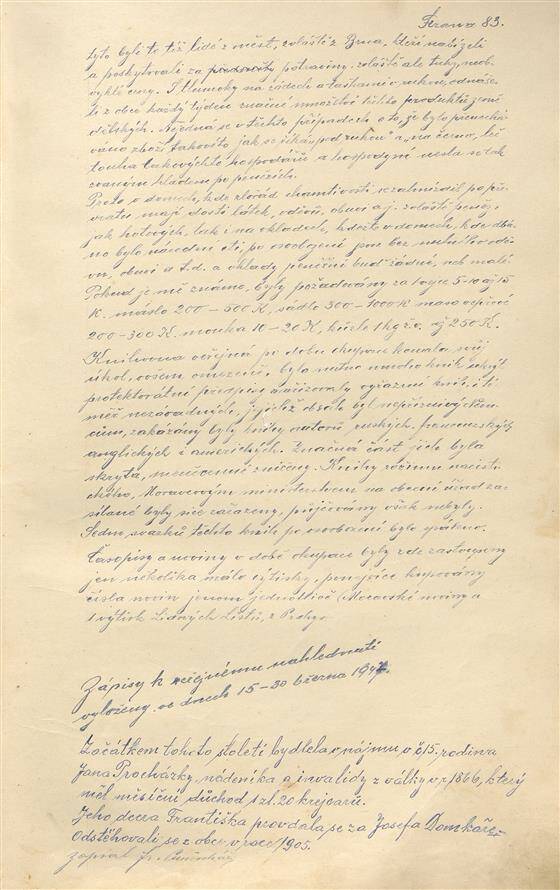 Strana 83.
byli to též lidé z měst, zvláště z Brna, kteří nabízeli
a poskytovali za potraviny, zvláště ale tuky, neob-
vyklé ceny. S tlumoky na zádech a taškami v rukou, odnáše-
li z obce každý týden značné množství těchto produktů země-
dělských. Nejedná se v těchto případech o to, že bylo přenechá-
váno zboží takovéto jak se říká "pod rukou" a na černo, leč
touha takovýchto hospodářů a hospodyně nesla se tak
zvaným hladem po penězích.
Proto v domech, kde zlořád chamtivosti se zahnízdil po pře-
vratu mají dosti látek, oděvů, obuvi a j. zvláště peněz,
jak hotových, tak i na vkladech, kdežto v domech, kde dbá-
no bylo národní cti po osvobození jsou bez nutného odě-
vu, obuvi a t.d. a vklady peněžní buď žádné, neb malé
Pokud je mě známo, byly požadovány za 1 vejce 5-10 až 15
K. máslo 200 - 500 K, sádlo 300 - 1000 K maso vepřové
200-300 K. mouka 10-20 K, kůzle 1 kg ž.v. až 250 K.
Knihovna veřejná po dobu okupace konala svůj
úkol, ovšem omezeně, bylo nutno mnoho knih ukrýt
protektorátní předpisy nařizovaly vyřazení knih, i ti
měř nezávadných, jejichž obsah byl nepříznivý Něm-
cům, zakázány byly knihy autorů ruských, francouzských
anglických i amerických. Značná část jich byla
skryta, méněcenné zničeny. Knihy režimu nacist-
ckého, Moravcovým ministerstvem na obecní úřad za-
sílané byly sice zařazeny, půjčovány však nebyly.
Sedm svazků těchto knih po osvobození bylo spáleno.
Časopisy a noviny v době okupace byly zde zastoupeny
jen několika málo výtisky, ponejvíce kupovány
čísla novin jenom jednotlivě (Moravské noviny a
1 výtisk Lidových Listů, z Prahy
Zápisy k veřejnému nahlédnutí
vyloženy ve dnech 15-30 března 1947.
Začátkem tohoto století bydlela v nájmu v č. 5. rodina
Jana Procházky, nádeníka a invalidy z války v r. 1866, který
měl měsíční důchod 1 zl. 20 krejcarů.
Jeho dcera Františka provdala se za Josefa Domkáře
Odstěhovali se z obce v roce 1905.
zapsal Fr.